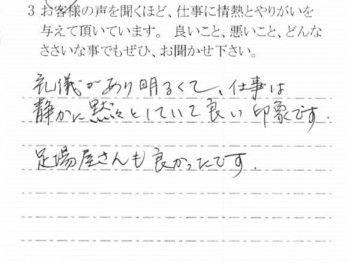 3 お客様の声を聞くほど、仕事に情熱とやりがいを
与えて頂いています。 良いこと、悪いこと、どんな
ささいな事でもぜひ、お聞かせ下さい。
礼儀があり明るくて、仕事は
静かに黙々としていて良い印象です。
足場屋さんも良かったです。